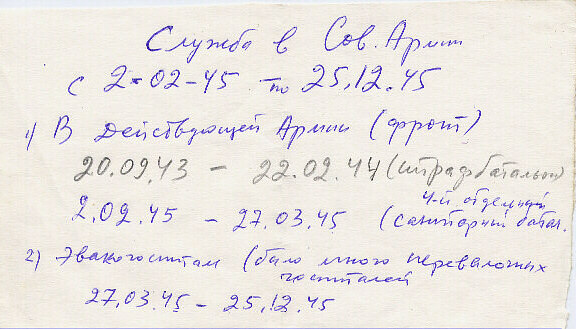 Служба в Сов. Армии
с 2-02-45 по 25.12.45
1) В Действующей Армии (фронт)
20.09.43 – 22.02.44 (штрафбатальон)
4-й отдельный
2.02.45 – 27.03.45 (санитарный батал.
2) Эвакогоспитали (было много перевалочных
госпиталей
27.03.45 – 25.12.45